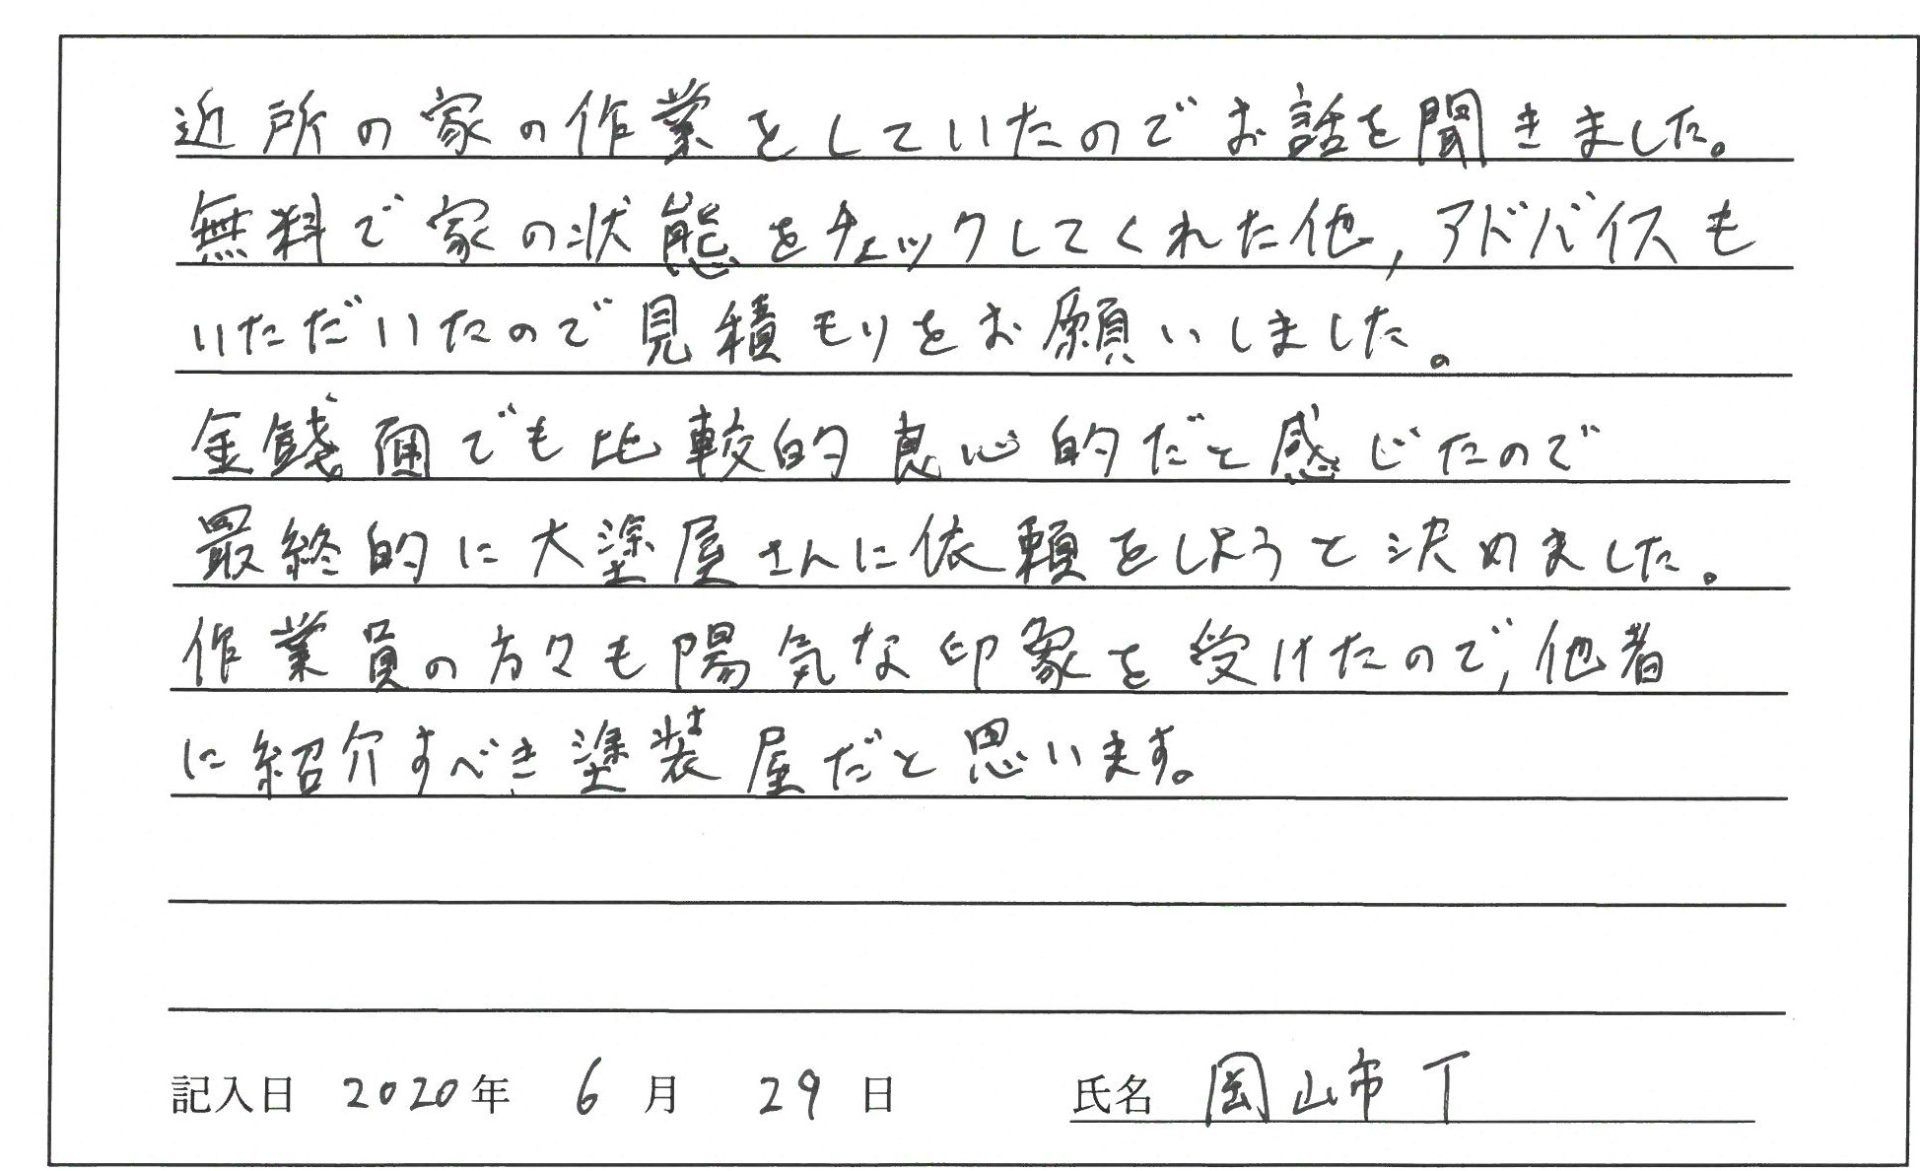 近所の家の作業をしていたのでお話を聞きました。
無料で家の状態をチェックしてくれた他,アドバイスも
いただいたので見積モリをお願いしました。
金銭面でも比較的良心的だと感じたので
最終的に大塗屋さんに依頼をしようと決めました。
作業員の方々も陽気な印象を受けたので,他者
に紹介すべき塗装屋だと思います。
記入日 2020年 6月 29日 氏名 岡山市 T